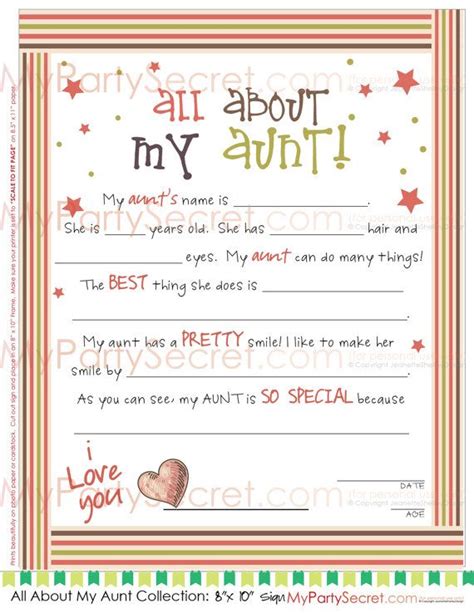 MyPartySecret.com
all about
my aunt!
My aunt's name is
She is years old. She has hair and
eyes. My aunt can do many things!
The BEST thing she does is
.
My aunt has a PRETTY smile! I like to make her
smile by .
As you can see, my AUNT is SO SPECIAL because
.
i
Love
you
DATE
AGE
MyPartySecret.com
MyPartySecret.com
MyPartySecret.com
Prints beautifully on photo paper or cardstock. Cut out sign and place in an 8" x 10" frame. Make sure your printer is set to "SCALE TO FIT PAGE" on 8.5" x 11" paper.
All About My Aunt Collection: 8"x 10" Sign MyPartySecret.com